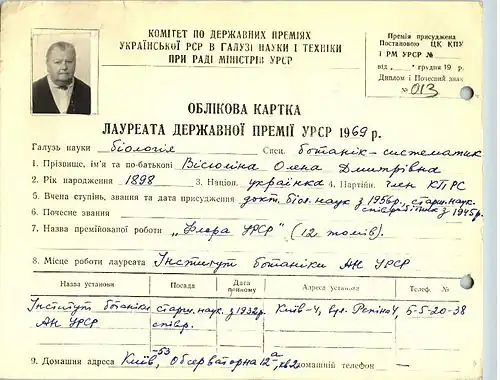 КОМІТЕТ ПО ДЕРЖАВНИХ ПРЕМІЯХ
УКРАЇНСЬКОЇ РСР В ГАЛУЗІ НАУКИ І ТЕХНІКИ
ПРИ РАДІ МІНІСТРІВ УРСР
Премія присуджена
Постановою ЦК КПУ
і РМ УРСР №
від „ “ грудня 19 р.
Диплом і Почесний знак
№ 013
ОБЛІКОВА КАРТКА
ЛАУРЕАТА ДЕРЖАВНОЇ ПРЕМІЇ УРСР 1969 р.
Галузь науки біологія Спец. ботанік-систематик
1. Прізвище, ім'я та по-батькові Вісюліна Олена Дмитрівна
2. Рік народження 1898 3. Націон. українка 4. Партійн. член КПРС
5. Вчена ступінь, звання та дата присудження докт. біол. наук з 1956р., старш. наук.
6. Почесне звання співр. з 1945р.
7. Назва премійованої роботи „Флора УРСР" (12 томів).
8. Місце роботи лауреата Інститут ботаніки АН УРСР
Назва установи Посада Дата прийому Адреса установи Телеф. №
Інститут ботаніки старш. наук. з 1932р. Київ-4, вул. Рєпіна 4, 5-5-20-38
АН УРСР співр.
9. Домашня адреса Київ-53, Обсерваторна 12а, кв2 домашній телефон —